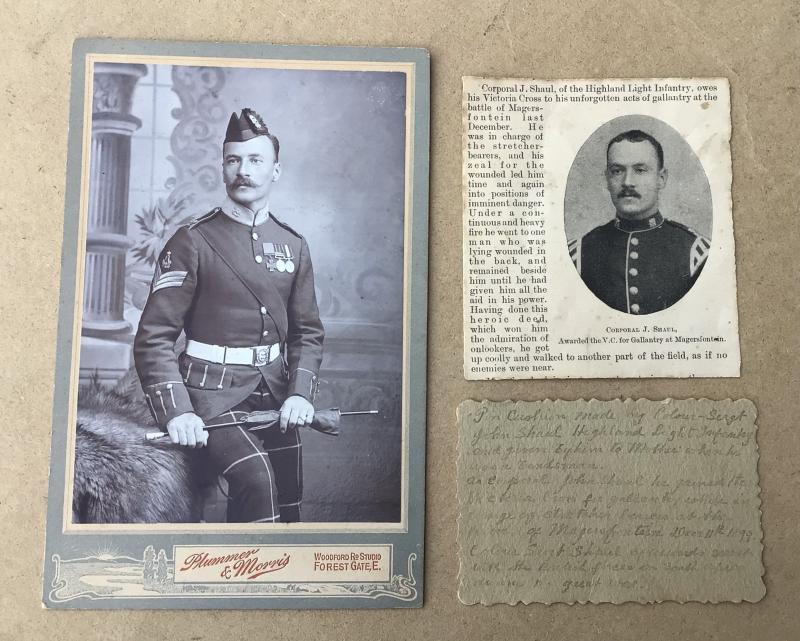 Plummer
& Morris
WOODFORD RD STUDIO
FOREST GATE, E.
Corporal J. Shaul, of the Highland Light Infantry, owes
his Victoria Cross to his unforgotten acts of gallantry at the
battle of Magers-
fontein last
December. He
was in charge of
the stretcher-
bearers, and his
zeal for the
wounded led him
time and again
into positions of
imminent danger.
Under a con-
tinuous and heavy
fire he went to one
man who was
lying wounded in
the back, and
remained beside
him until he had
given him all the
aid in his power.
Having done this
heroic deed,
which won him
the admiration of
onlookers, he got
up coolly and walked to another part of the field, as if no
enemies were near.
CORPORAL J. SHAUL,
Awarded the V.C. for Gallantry at Magersfontein.
Pin Cushion made by Colour-Sergt
John Shaul Highland Light Infantry
and given by him to Mother when he
was a Bandsman.
As Corporal John Shaul he gained the
Victoria Cross for gallantry while in
charge of stretcher bearers at the
of Magersfontein Decr 11th 1899
Sergt Shaul
with the British
great